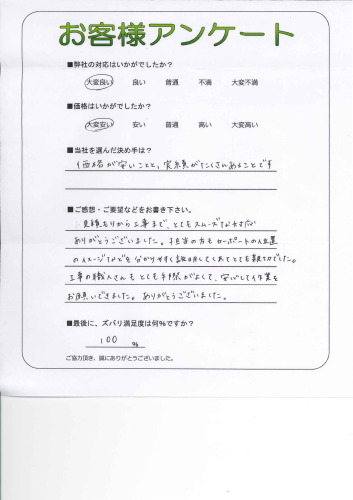 お客様アンケート
■弊社の対応はいかがでしたか?
大変良い 良い 普通 不満 大変不満
■価格はいかがでしたか?
大変安い 安い 普通 高い 大変高い
■当社を選んだ決め手は?
価格が安いことと、実績がたくさんあることです
■ご感想・ご要望などをお書き下さい。
見積もりから工事まで、とてもスムーズな対応
ありがとうございました。担当の方もカーポートの位置
のイメージなどを分かりやすく説明してくれてとても親切でした。
工事の職人さんもとても手際がよくて、安心して作業を
お願いできました。ありがとうございました。
■最後に、ズバリ満足度は何%ですか?
100 %
ご協力頂き、誠にありがとうございました。